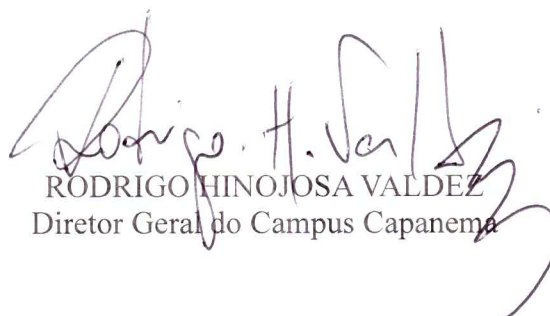 Rodrigo. H. Valdez
RODRIGO HINOJOSA VALDEZ
Diretor Geral do Campus Capanema